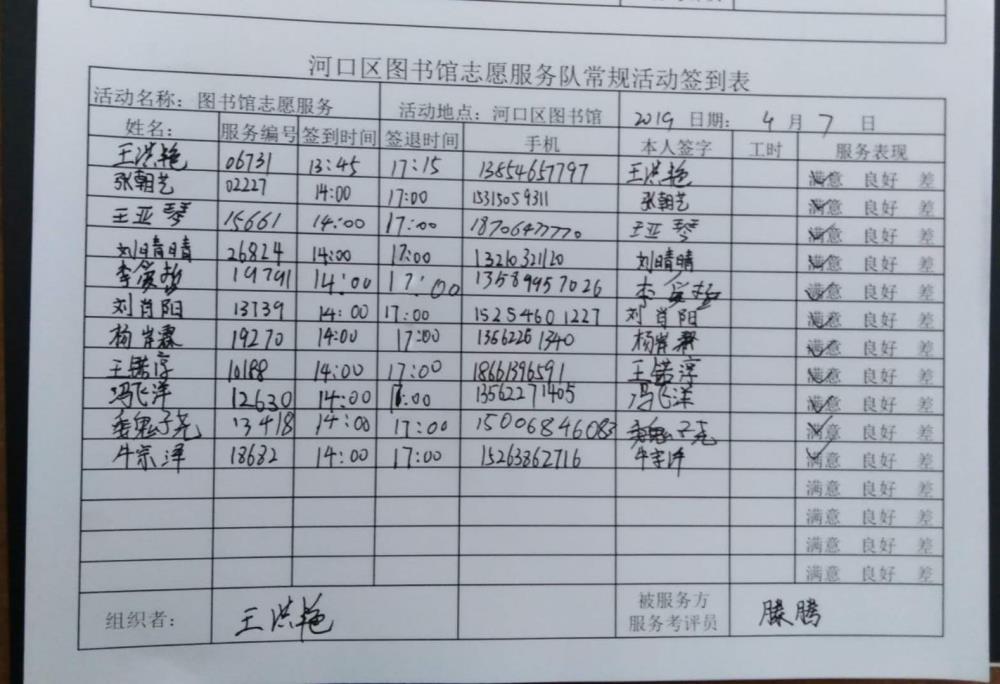 河口区图书馆志愿服务队常规活动签到表
活动名称：图书馆志愿服务 活动地点：河口区图书馆 2019 日期： 4 月 7 日
姓名： 服务编号 签到时间 签退时间 手机 本人签字 工时 服务表现
王洪艳 06731 13:45 17:15 13854657797 王洪艳 满意 良好 差
张朝艺 02227 14:00 17:00 15315059311 张朝艺 满意 良好 差
王亚琴 15661 14:00 17:00 18706477770 王亚琴 满意 良好 差
刘晴晴 26824 14:00 17:00 13210321120 刘晴晴 满意 良好 差
李 19791 14:00 17:00 13589957026 李 满意 良好 差
刘肖阳 13739 14:00 17:00 15254601227 刘肖阳 满意 良好 差
杨岸霖 19270 14:00 17:00 13662261340 杨岸霖 满意 良好 差
王锘淳 10188 14:00 17:00 18661396591 王锘淳 满意 良好 差
冯飞洋 12630 14:00 17:00 13562271405 冯飞洋 满意 良好 差
魏子尧 13418 14:00 17:00 15006846083 魏子尧 满意 良好 差
牛宗泽 18682 14:00 17:00 15263862716 牛宗泽 满意 良好 差
满意 良好 差
满意 良好 差
满意 良好 差
满意 良好 差
组织者： 王洪艳 被服务方 滕腾
服务考评员